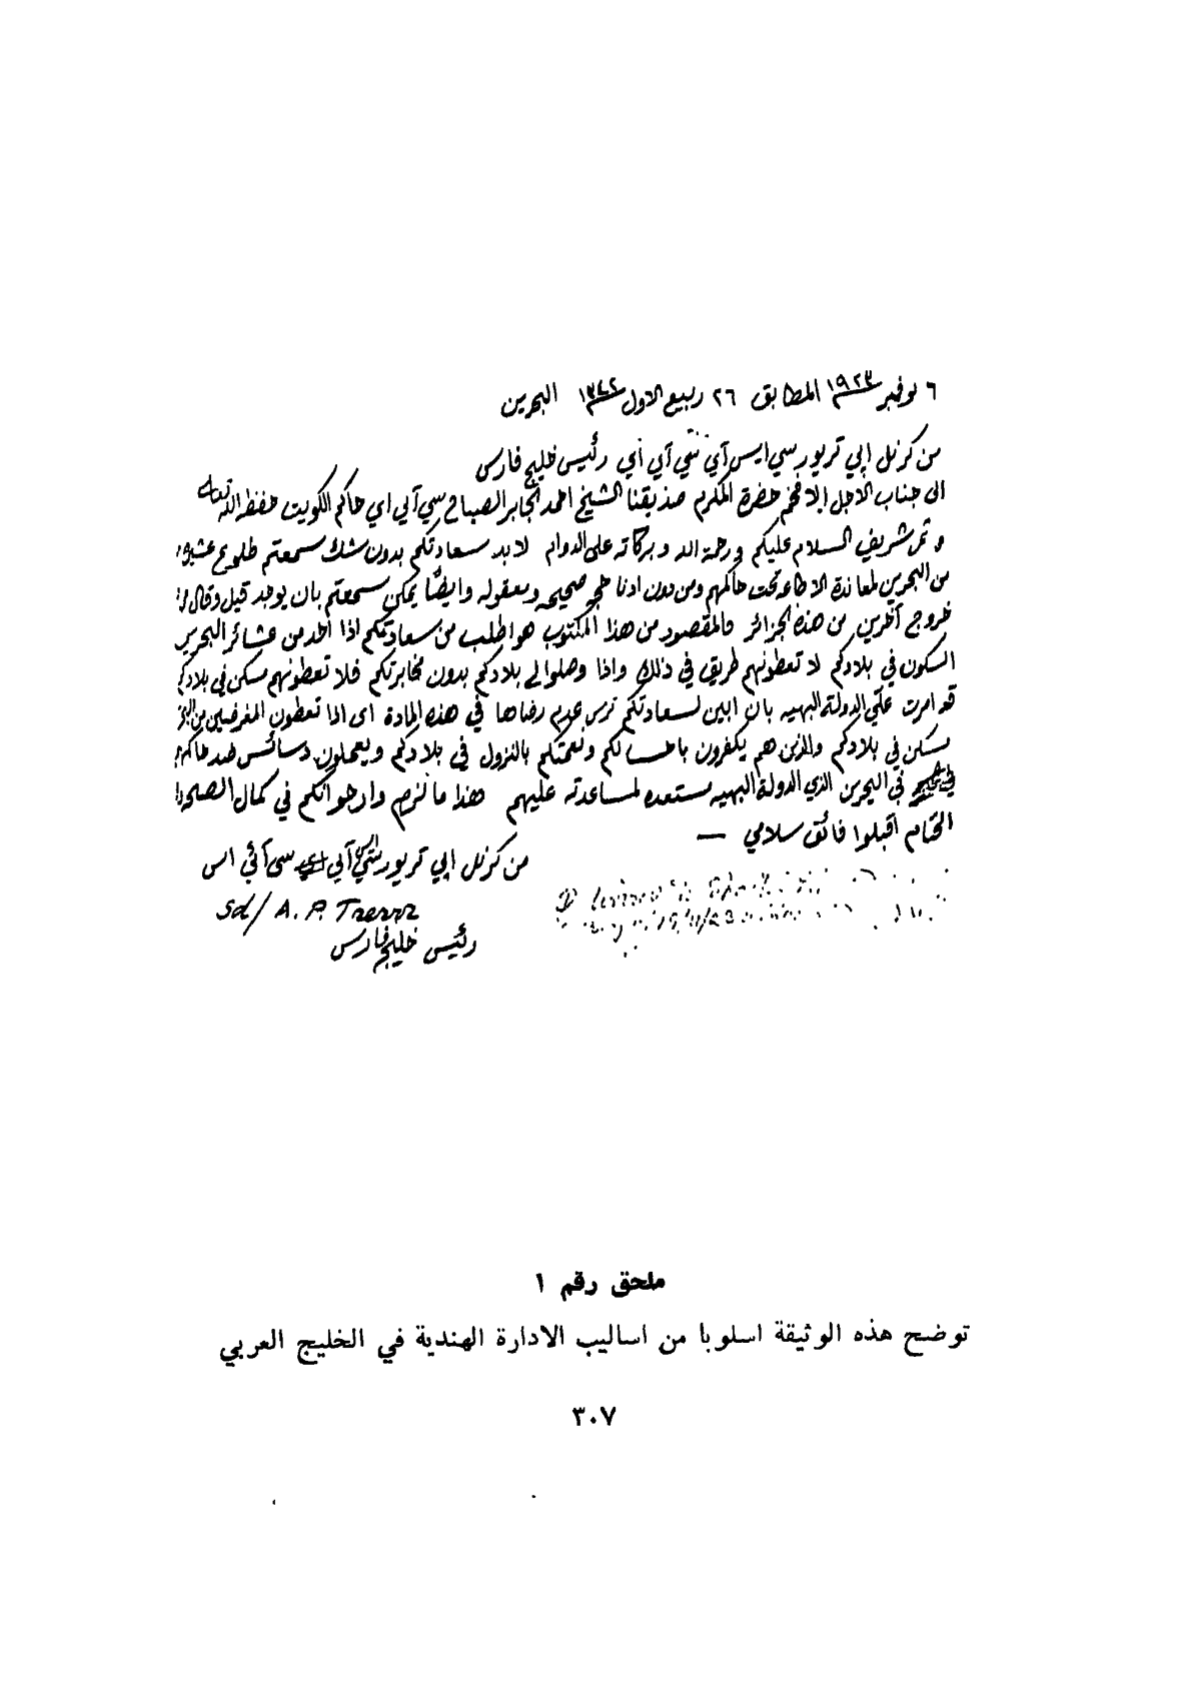 ٦ نوفمبر ١٩٢٣ المطابق ٢٦ ربيع الاول ١٣٤٢ البحرين
من كرنل اپي تريور سي ايس آي سي آي اي رئيس خليج فارس
الى جناب الاجل الافخم حضرة المكرم صديقنا الشيخ احمد الجابر الصباح سي آي اي حاكم الكويت حفظه الله تعالى
السلام عليكم ورحمة الله وبركاته على الدوام لابد سعادتكم بدون شك سمعتم طلوع
من البحرين لمعاندة الاطاعة تحت حاكمهم ومن دون ادنا صحيحه ومعقوله وايضًا يمكن سمعتم بان يوجد قيل وقال
خروج آخرين من هذه الجزائر فالمقصود من هذا المكتوب هو اطلب من سعادتكم اذا احد من عشائر البحرين
السكون في بلادكم لا تعطونهم طريق في ذلك واذا وصلوا الى بلادكم بدون مخابرتكم فلا تعطونهم مسكن في بلادكم
قد امرت علي الدولة البهيه بان ابين لسعادتكم عدم رضاها في هذه المادة اي اذا تعطون المغرضين من
مسكن في بلادكم والذين هم يكفرون باحسانكم ونعمتكم بالنزول في بلادكم ويعملون دسائس ضد حاكم
في البحرين الذي الدولة البهيه مستعده لمساعدته عليهم هذا ما لزم وارجو انكم في كمال الصحه
الختام اقبلوا فائق سلامي —
من كرنل اپي تريور سي آي سي آئي اس
Sd/ A. P. Trevor
رئيس خليج فارس
ملحق رقم ١
توضح هذه الوثيقة اسلوبا من اساليب الادارة الهندية في الخليج العربي
٣٠٧